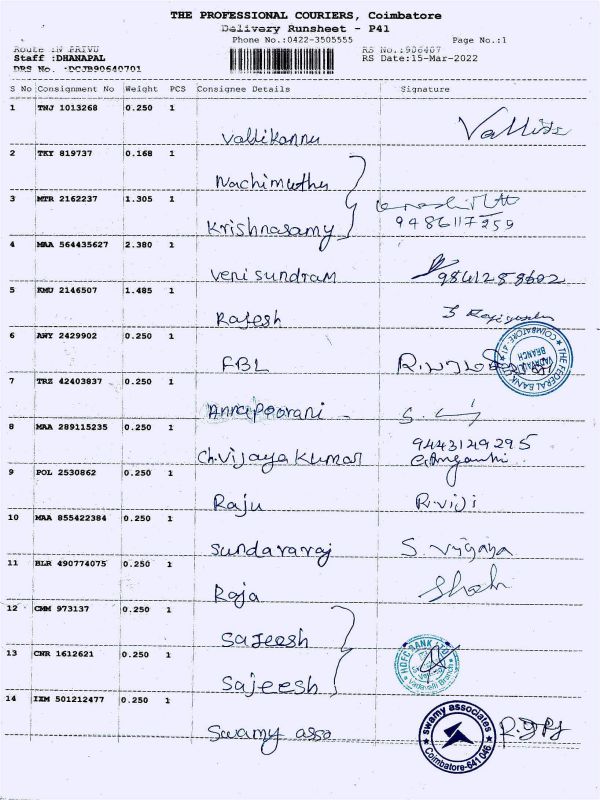 THE PROFESSIONAL COURIERS, Coimbatore
Delivery Runsheet - P41
Phone No.:0422-3505555 Page No.:1
Route :N PRIVU RS No.:906407
Staff :DHANAPAL RS Date:15-Mar-2022
DRS No. :DCJB90640701
S No Consignment No Weight PCS Consignee Details Signature
1 TNJ 1013268 0.250 1
Vallikannu
2 TKY 819737 0.168 1
Nachimuthu
3 MTR 2162237 1.305 1
Krishnasamy 9486117259
4 MAA 564435627 2.380 1
Venisundram
5 KMU 2146507 1.485 1
Rajesh
6 ANY 2429902 0.250 1
FBL
THE FEDERAL BANK
COIMBATORE - 41
BRANCH
7 TRZ 42403837 0.250 1
Annapoorani -
8 MAA 289115235 0.250 1
9443129295
Ch.Vijayakumar
9 POL 2530862 0.250 1
Raju R.viji
10 MAA 855422384 0.250 1
Sundararaj S. Vijaya
11 BLR 490774075 0.250 1
Raja
12 CMM 973137 0.250 1
Sajeesh
13 CNR 1612621 0.250 1
HDFC BANK LTD
Sajeesh
14 IXM 501212477 0.250 1
Swamy asso
swamy associates
Coimbatore-641 046